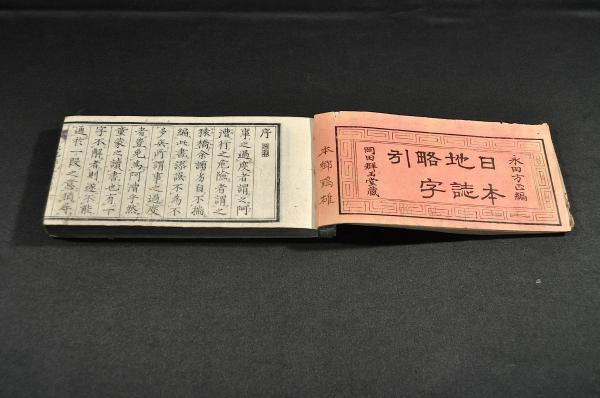 永田方正編
日本
地誌
略字
引
岡田群玉堂蔵
本郷鶴雄
序
事之過度者謂之阿
漕行之危險者謂之
猿橋余誦者自不揣
編此書落誤不為不
多矣所謂事之過度
者豈免為阿漕乎然
童蒙之讀書也有一
字不解者則遂不能
通於一段之意